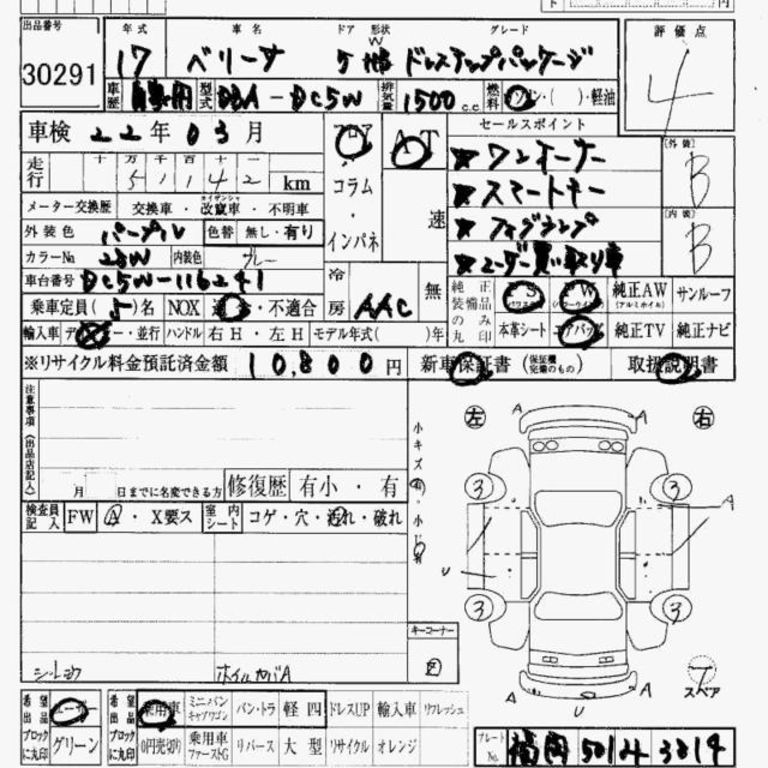 円
出品番号 30291
年式 車名 ドア 形状 グレード 評価点
17 ベリーサ 5 W ドレスアップパッケージ 4
車歴 自家用 型式 DBA-DC5W 排気量 1500 c.c. 燃料 ガソリン・( )・軽油
車検 22年 03月 フロア AT セールスポイント
走行 十 万 千 百 十 一
5 1 1 4 2 km コラム ★ワンオーナー [外装] B
メーター交換歴 交換車・改竄車・不明車 ★スマートキー
外装色 パープル 色替 無し・有り インパネ 速 ★フォグランプ [内装] B
カラーNo. 28W 内装色 グレー ★ユーザー買い取り車
車台番号 DC5W-116241 冷房 AAC 無 純正装備品のみ丸印 PS (パワステ) PW (パワーウィンド) 純正AW (アルミホイル) サンルーフ
乗車定員(5)名 NOX 適合・不適合
輸入車 ディーラー・並行 ハンドル 右H・左H モデル年式( )年 本革シート エアバッグ 純正TV 純正ナビ
※リサイクル料金預託済金額 10,800 円 新車保証書 (保証欄完備のもの) 取扱説明書
注意事項《出品店記入》
小キズ有 小凹有
左 右
A A
3 3
A
月 日までに名変できる方 修復歴 有小・有
検査員記入 FW A・X要ス 室内シート コゲ・穴・汚れ・破れ
U
3 3
キーコーナー
図
シートヨゴ ホイルカバA
A A
U
T
スペア
希望出品ブロックに丸印 ユーザー グリーン
希望出品ブロックに丸印 乗用車 ミニバン キャブワゴン バン・トラ 軽四 ドレスUP 輸入車 リフレッシュ
0円売切り 乗用車ファーストG リバース 大型 リサイクル オレンジ
プレートNo. 福岡 501 3814